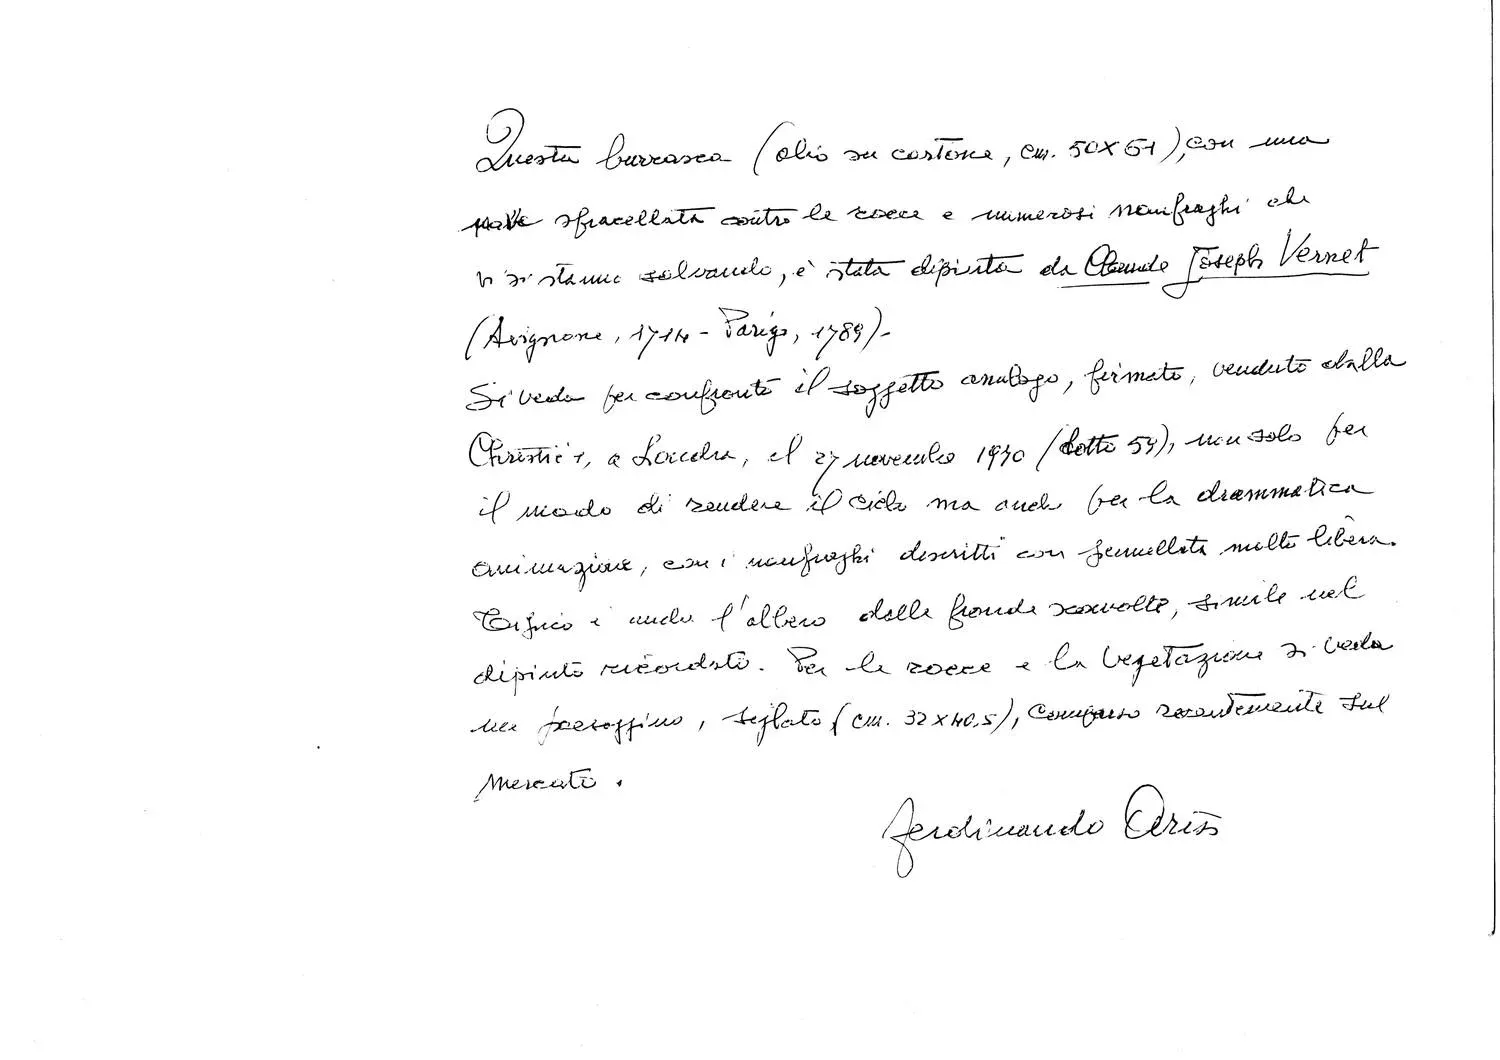 Questa burrasca (olio su cartone, cm. 50x61), con una
nave sfracellata contro le rocce e numerosi naufraghi che
vi si stanno salvando, è stata dipinta da Claude Joseph Vernet
(Avignone, 1714 - Parigi, 1789).
Si veda per confronto il soggetto analogo, firmato, venduto dalla
Christie's, a Londra, il 27 novembre 1970 (lotto 59), non solo per
il modo di rendere il cielo ma anche per la drammatica
animazione, con i naufraghi descritti con pennellata molto libera.
Tipico è anche l'albero dalle fronde sconvolte, simile nel
dipinto ricordato. Per le rocce e la vegetazione si veda
un paesaggino, siglato (cm. 32x40,5), comparso recentemente sul
mercato.
Ferdinando Arisi